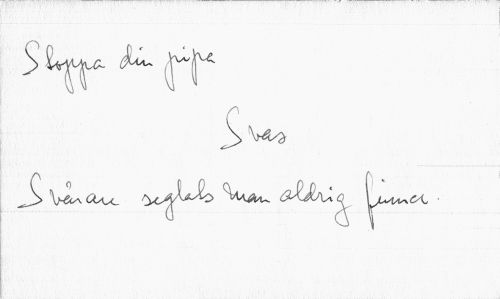 Stoppa din pipa
Svar
Svårare seglats man aldrig finner.